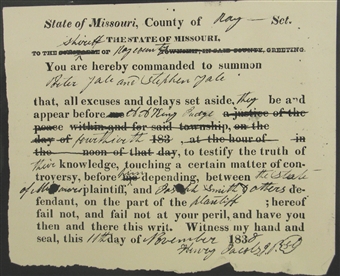 State of Missouri, County of Ray — Sct.
THE STATE OF MISSOURI,
Sheriff
TO THE CONSTABLE OF Ray county TOWNSHIP, IN SAID COUNTY, GREETING.
You are hereby commanded to summon
Peter Yale and Stephen Yale
that, all excuses and delays set aside, they be and
appear before A A King Judge a justice of the
peace within and for said township, on the
day of fourthwith 183 , at the hour of — in
the noon of that day, to testify the truth of
their knowledge, touching a certain matter of con-
troversy, before him me depending, between the State
of Missouri plaintiff, and Joseph Smith & others de-
fendant, on the part of the plaintiff ; hereof
fail not, and fail not at your peril, and have you
then and there this writ. Witness my hand and
seal, this 11th day of November 1838
Henry Jacobs